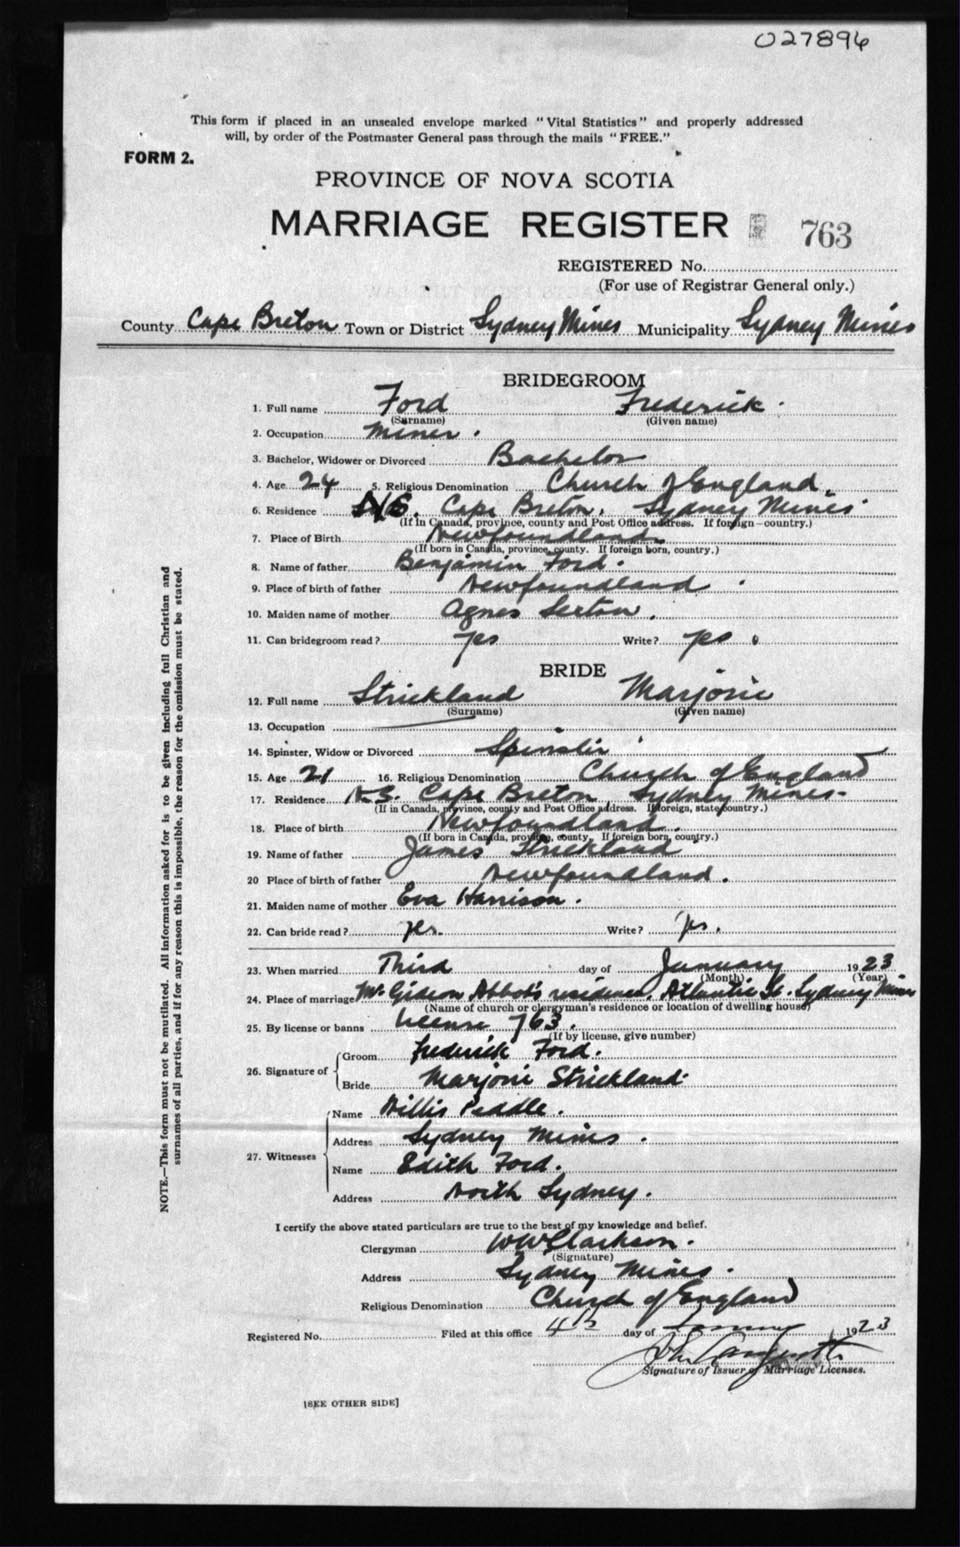 027896
This form if placed in an unsealed envelope marked "Vital Statistics" and properly addressed
will, by order of the Postmaster General pass through the mails "FREE."
FORM 2.
PROVINCE OF NOVA SCOTIA
MARRIAGE REGISTER 763
REGISTERED No.
(For use of Registrar General only.)
County Cape Breton Town or District Sydney Mines Municipality Sydney Mines
BRIDEGROOM
1. Full name Ford Frederick
(Surname) (Given name)
2. Occupation Miner.
3. Bachelor, Widower or Divorced Bachelor
4. Age 24 5. Religious Denomination Church of England
6. Residence N.S. Cape Breton. Sydney Mines
(If in Canada, province, county and Post Office address. If foreign—country.)
7. Place of Birth Newfoundland
(If born in Canada, province, county. If foreign born, country.)
8. Name of father Benjamin Ford.
9. Place of birth of father Newfoundland
10. Maiden name of mother Agnes
11. Can bridegroom read? yes Write? yes
BRIDE
12. Full name Strickland Marjorie
(Surname) (Given name)
13. Occupation
14. Spinster, Widow or Divorced Spinster
15. Age 21 16. Religious Denomination Church of England
17. Residence N.S. Cape Breton Sydney Mines
(If in Canada, province, county and Post Office address. If foreign, state country.)
18. Place of birth Newfoundland.
(If born in Canada, province, county. If foreign born, country.)
19. Name of father James Strickland
20 Place of birth of father Newfoundland.
21. Maiden name of mother Eva Harrison.
22. Can bride read? yes. Write? yes.
23. When married Third day of January 1923
(Month) (Year)
24. Place of marriage Mr Gideon Abbot's residence, Atlantic St. Sydney Mines
(Name of church or clergyman's residence or location of dwelling house)
25. By license or banns License 763.
(If by license, give number)
26. Signature of Groom Frederick Ford.
Bride Marjorie Strickland
27. Witnesses Name Willis Peddle.
Address Sydney Mines.
Name Edith Ford.
Address North Sydney.
I certify the above stated particulars are true to the best of my knowledge and belief.
Clergyman WW Clarkson.
(Signature)
Address Sydney Mines.
Religious Denomination Church of England
Registered No. Filed at this office 4th day of 1923
Signature of Issuer of Marriage Licenses.
[SEE OTHER SIDE]
NOTE.—This form must not be mutilated. All information asked for is to be given including full Christian and
surnames of all parties, and if for any reason this is impossible, the reason for the omission must be stated.